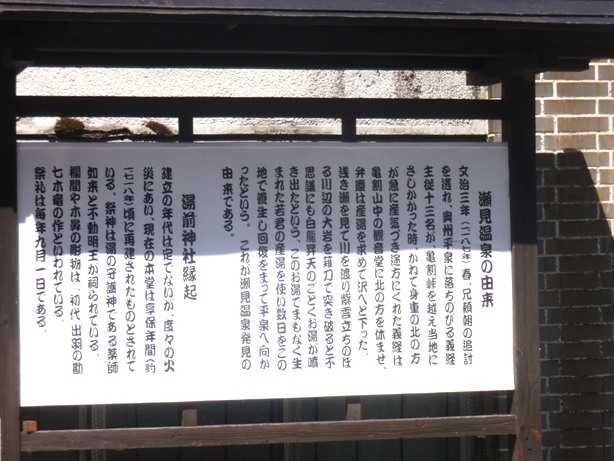 瀬見温泉の由来
文治三年(一一八七年)春、兄頼朝の追討
を逃れ、奥州平泉に落ちのびる義経
主従十三名が、亀割峠を越え当地に
さしかかった時、かねて身重の北の方
が急に産気づき途方にくれた義経は
亀割山中の観音堂に北の方を休ませ、
弁慶は産湯を求めて沢へと下った、
浅き瀬を見て川を渡り紫雲立ちのぼ
る川辺の大岩を薙刀で突き破ると不
思議にも白龍昇天のごとくお湯が噴
き出たという、このお湯でまもなく生
まれた若君の産湯を使い数日をこの
地で養生し回復をまって平泉へ向か
ったという。これが瀬見温泉発見の
由来である。
湯前神社縁起
建立の年代は定でないが、度々の火
災にあい、現在の本堂は享保年間(約
一七一八年)頃に再建されたものとされて
いる。祭神は湯の守護神である薬師
如来と不動明王が祠られている。
欄間や木鼻の彫物は、初代 出羽の勘
七木竜の作といわれている。
祭礼は毎年九月一日である。